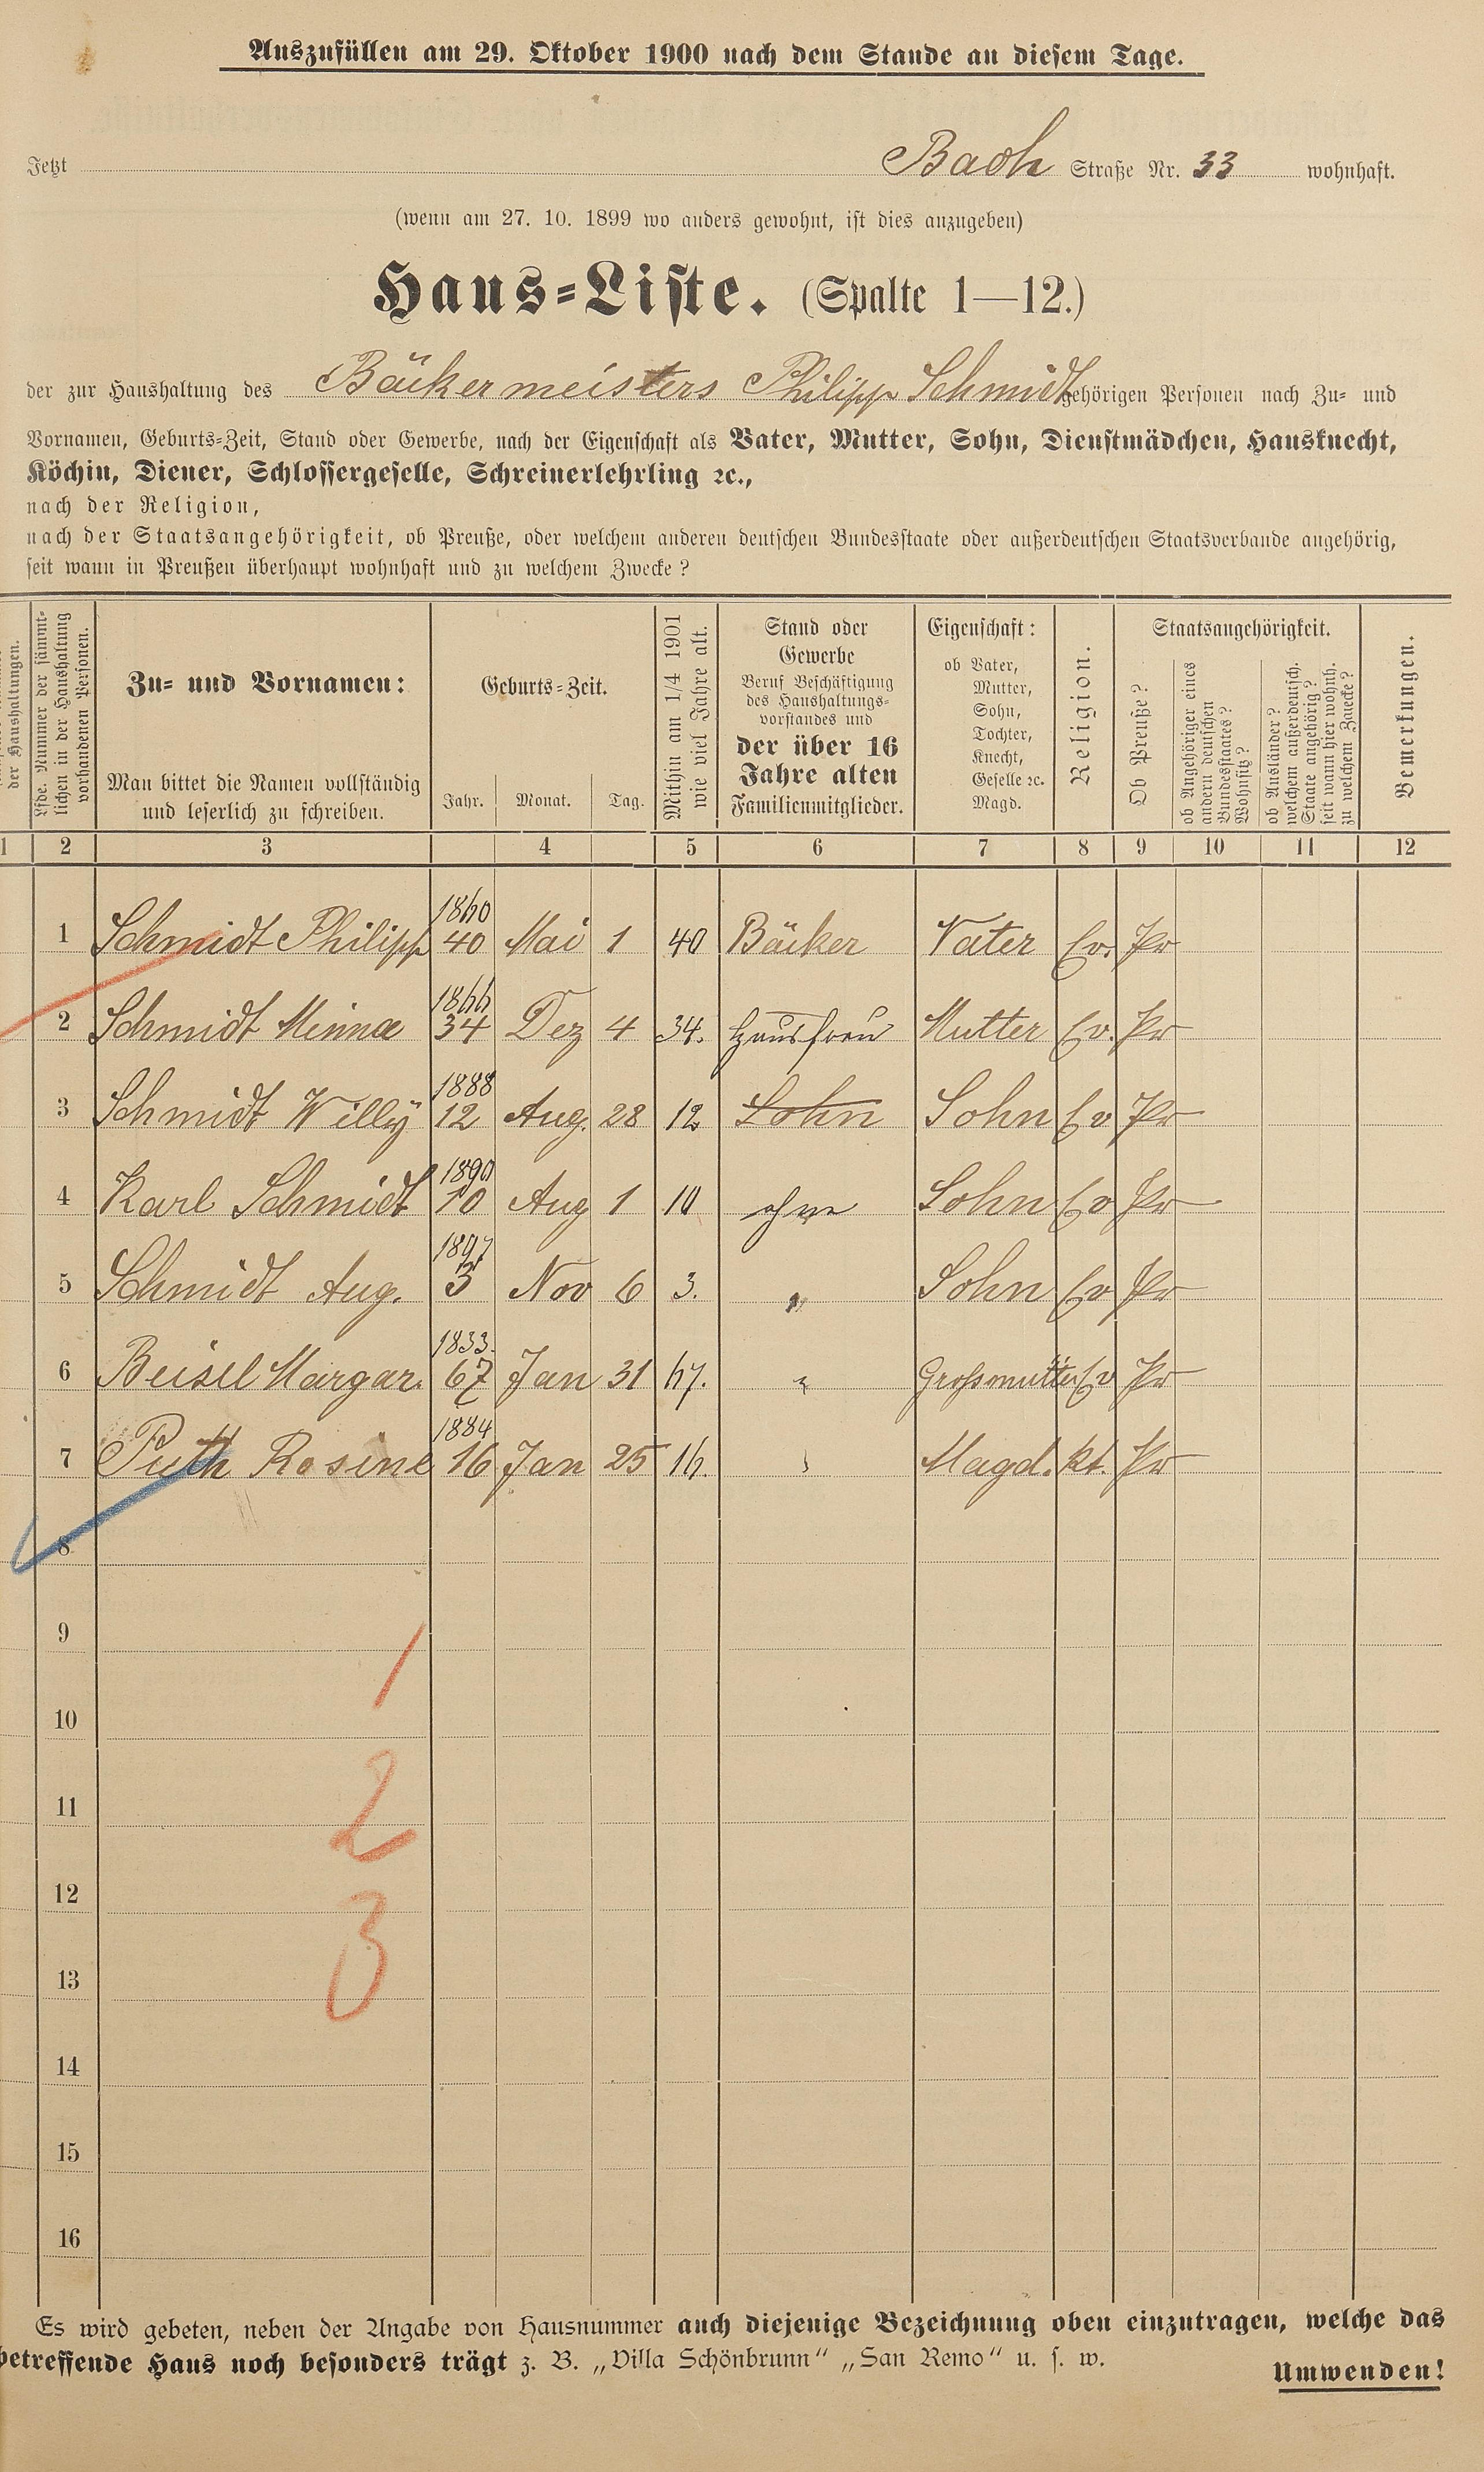 Auszufüllen am 29. Oktober 1900 nach dem Stande an diesem Tage.
Jetzt Bach Straße Nr. 33 wohnhaft.
(wenn am 27. 10. 1899 wo anders gewohnt, ist dies anzugeben)
Haus-Liste. (Spalte 1—12.)
der zur Haushaltung des Bäckermeisters Philipp Schmidt gehörigen Personen nach Zu- und
Vornamen, Geburts-Zeit, Stand oder Gewerbe, nach der Eigenschaft als Vater, Mutter, Sohn, Dienstmädchen, Hausknecht,
Köchin, Diener, Schlossergeselle, Schreinerlehrling ꝛc.,
nach der Religion,
nach der Staatsangehörigkeit, ob Preuße, oder welchem anderen deutschen Bundesstaate oder außerdeutschen Staatsverbande angehörig,
seit wann in Preußen überhaupt wohnhaft und zu welchem Zwecke?
der Haushaltungen.
Lfde. Nummer der sämmt-
lichen in der Haushaltung
vorhandenen Personen.
Zu- und Vornamen:
Man bittet die Namen vollständig
und leserlich zu schreiben.
Geburts-Zeit.
Jahr. Monat. Tag.
Mithin am 1/4 1901
wie viel Jahre alt.
Stand oder
Gewerbe
Beruf Beschäftigung
des Haushaltungs-
vorstandes und
der über 16
Jahre alten
Familienmitglieder.
Eigenschaft:
ob Vater,
Mutter,
Sohn,
Tochter,
Knecht,
Geselle ꝛc.
Magd.
Religion.
Staatsangehörigkeit.
Ob Preuße?
ob Angehöriger eines
andern deutschen
Bundesstaates?
Wohnsitz?
ob Ausländer?
welchem außerdeutsch.
Staate angehörig?
seit wann hier wohnh.
zu welchem Zwecke?
Bemerkungen.
1 2 3 4 5 6 7 8 9 10 11 12
1860
1 Schmidt Philipp 40 Mai 1 40 Bäcker Vater Ev. Pr
1866
2 Schmidt Minna 34 Dez 4 34. Hausfrau Mutter Ev. Pr
1888
3 Schmidt Willy 12 Aug. 28 12 Sohn Sohn Ev Pr
1890
4 Karl Schmidt 10 Aug 1 10 ohne Sohn Ev Pr
1897
5 Schmidt Aug. 3 Nov 6 3. " Sohn Ev Pr
1833.
6 Beisel Margar. 67 Jan 31 67. " Grossmutter Ev Pr
1884
7 Puth Rosine 16 Jan 25 16. " Magd. kt. Pr
8
9
1
10
11
2
12
3
13
14
15
16
Es wird gebeten, neben der Angabe von Hausnummer auch diejenige Bezeichnung oben einzutragen, welche das
betreffende Haus noch besonders trägt z. B. „Villa Schönbrunn“ „San Remo“ u. s. w.
Umwenden!